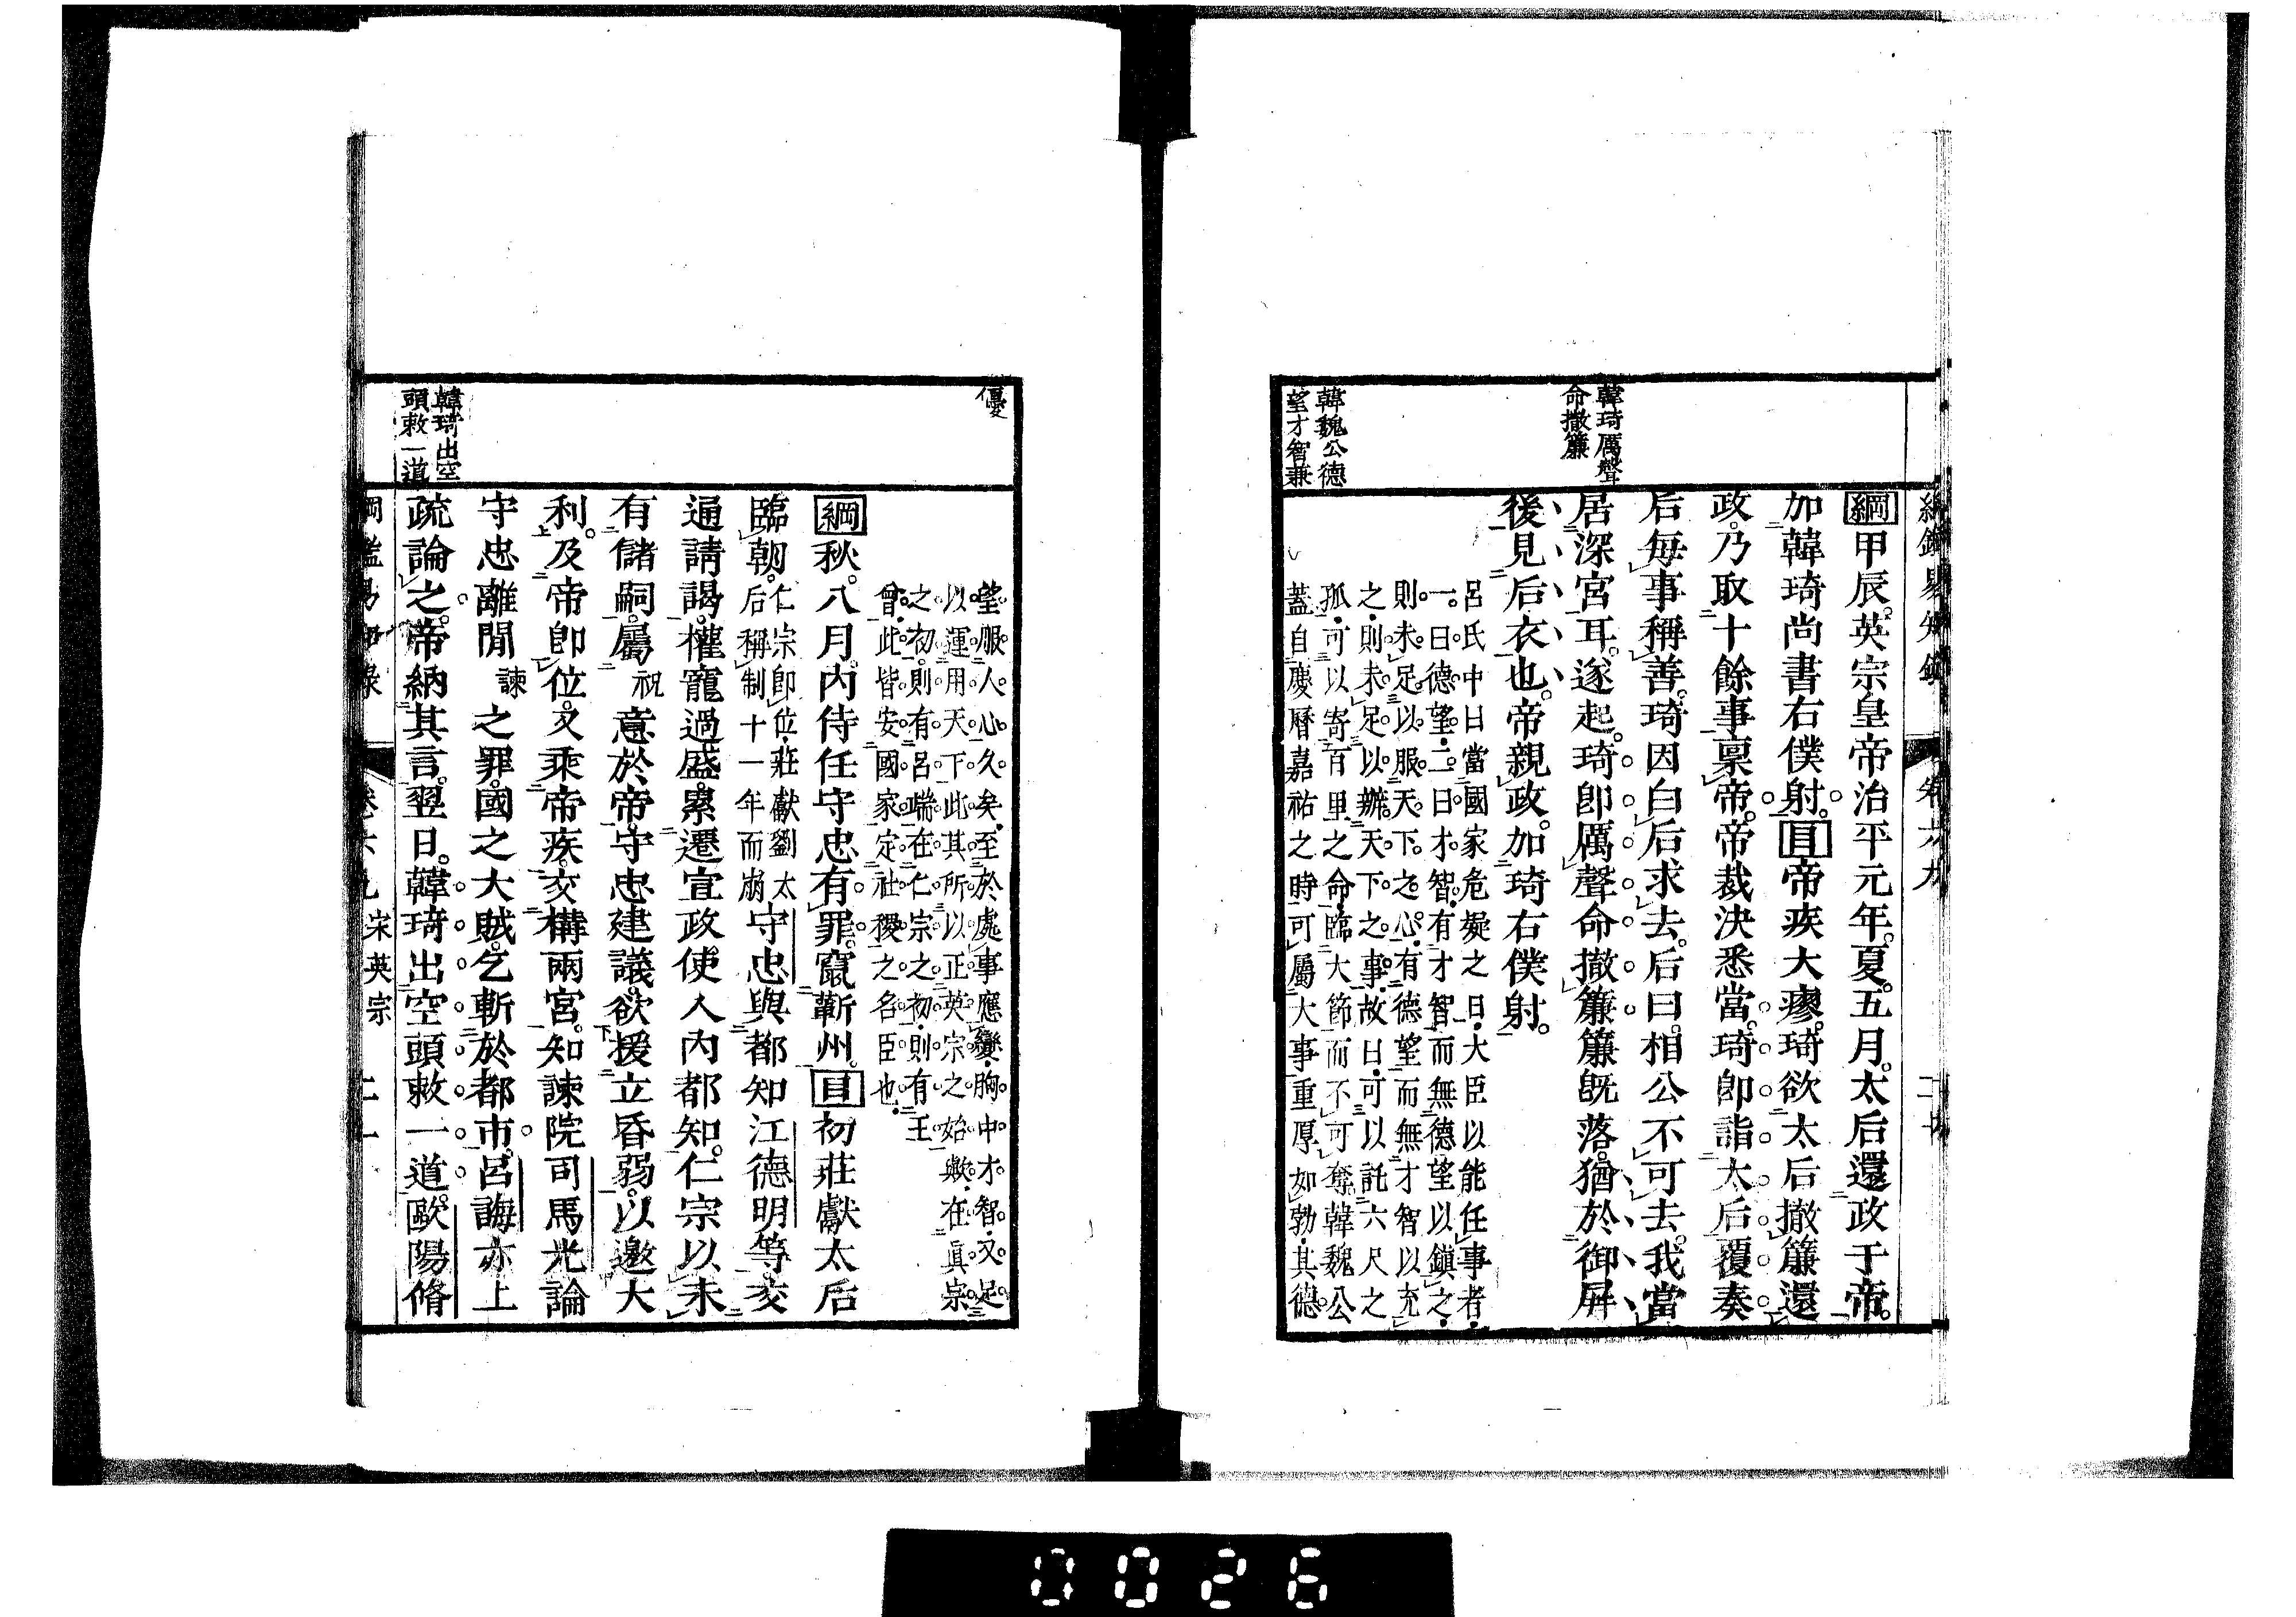 韓琦厲聲
命撤簾
韓魏公德
望才智兼
綱甲辰。英宗皇帝治平元年。夏。五月。太后還政于帝。
加韓琦尚書右僕射。目帝疾大瘳。琦欲太后撤簾還
政。乃取十餘事稟帝。帝裁決悉當。琦即詣太后覆奏。
后每事稱善。琦因白后求去。后曰。相公不可去。我當
居深宮耳。遂起。琦即厲聲命撤簾。簾既落。猶於御屏
後見后衣也。帝親政。加琦右僕射。
呂氏中曰當國家危疑之日。大臣以能任事者。
一曰德望。二曰才智。有才智而無德望以鎮之。
則未足以服天下之心。有德望而無才智以充
之。則未足以辦天下之事。故曰。可以託六尺之
孤。可以寄百里之命。臨大節而不可奪。韓魏公
蓋自慶曆嘉祐之時。可屬大事。重厚如勃。其德
優
望服人心久矣。至於處事應變。胸中才智。又足
以運用天下。此其所以正英宗之始歟。在眞宗
之初。則有呂端。在仁宗之初。則有王
曾。此皆安國家定社稷之名臣也。
綱秋。八月。內侍任守忠有罪。竄蘄州。目初莊獻太后
臨朝。仁宗即位。莊獻劉太
后稱制十一年而崩守忠與都知江德明等。交
通請謁。權寵過盛。累遷宣政使入內都知。仁宗以未
有儲嗣。屬祝意於帝。守忠建議。欲援立昏弱。以邀大
利。及帝即位。又乘帝疾。交構兩宮。知諫院司馬光論
守忠離間諫之罪。國之大賊。乞斬於都市。呂誨亦上
疏論之。帝納其言。翌日。韓琦出空頭敕一道。歐陽脩
韓琦出空
頭敕一道
綱鑑易知錄 卷六九 宋英宗 二一